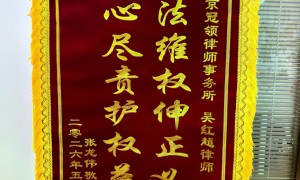 京冠领律师事务所 吴红超律师
法维权伸正
心尽责护权益
张龙伟敬
二零二六年五